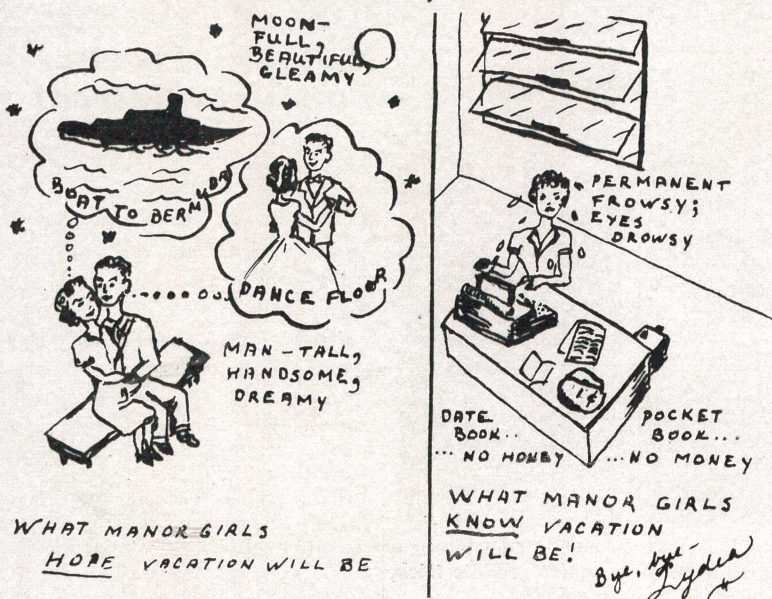 MOON-
FULL,
BEAUTIFUL,
GLEAMY
BOAT TO BERMUDA
DANCE FLOOR
MAN - TALL,
HANDSOME,
DREAMY
WHAT MANOR GIRLS
HOPE VACATION WILL BE
PERMANENT
FROWSY;
EYES
DROWSY
DATE
BOOK..
... NO HONEY
POCKET
BOOK...
...NO MONEY
WHAT MANOR GIRLS
KNOW VACATION
WILL BE!
Bye, bye-
Lydia